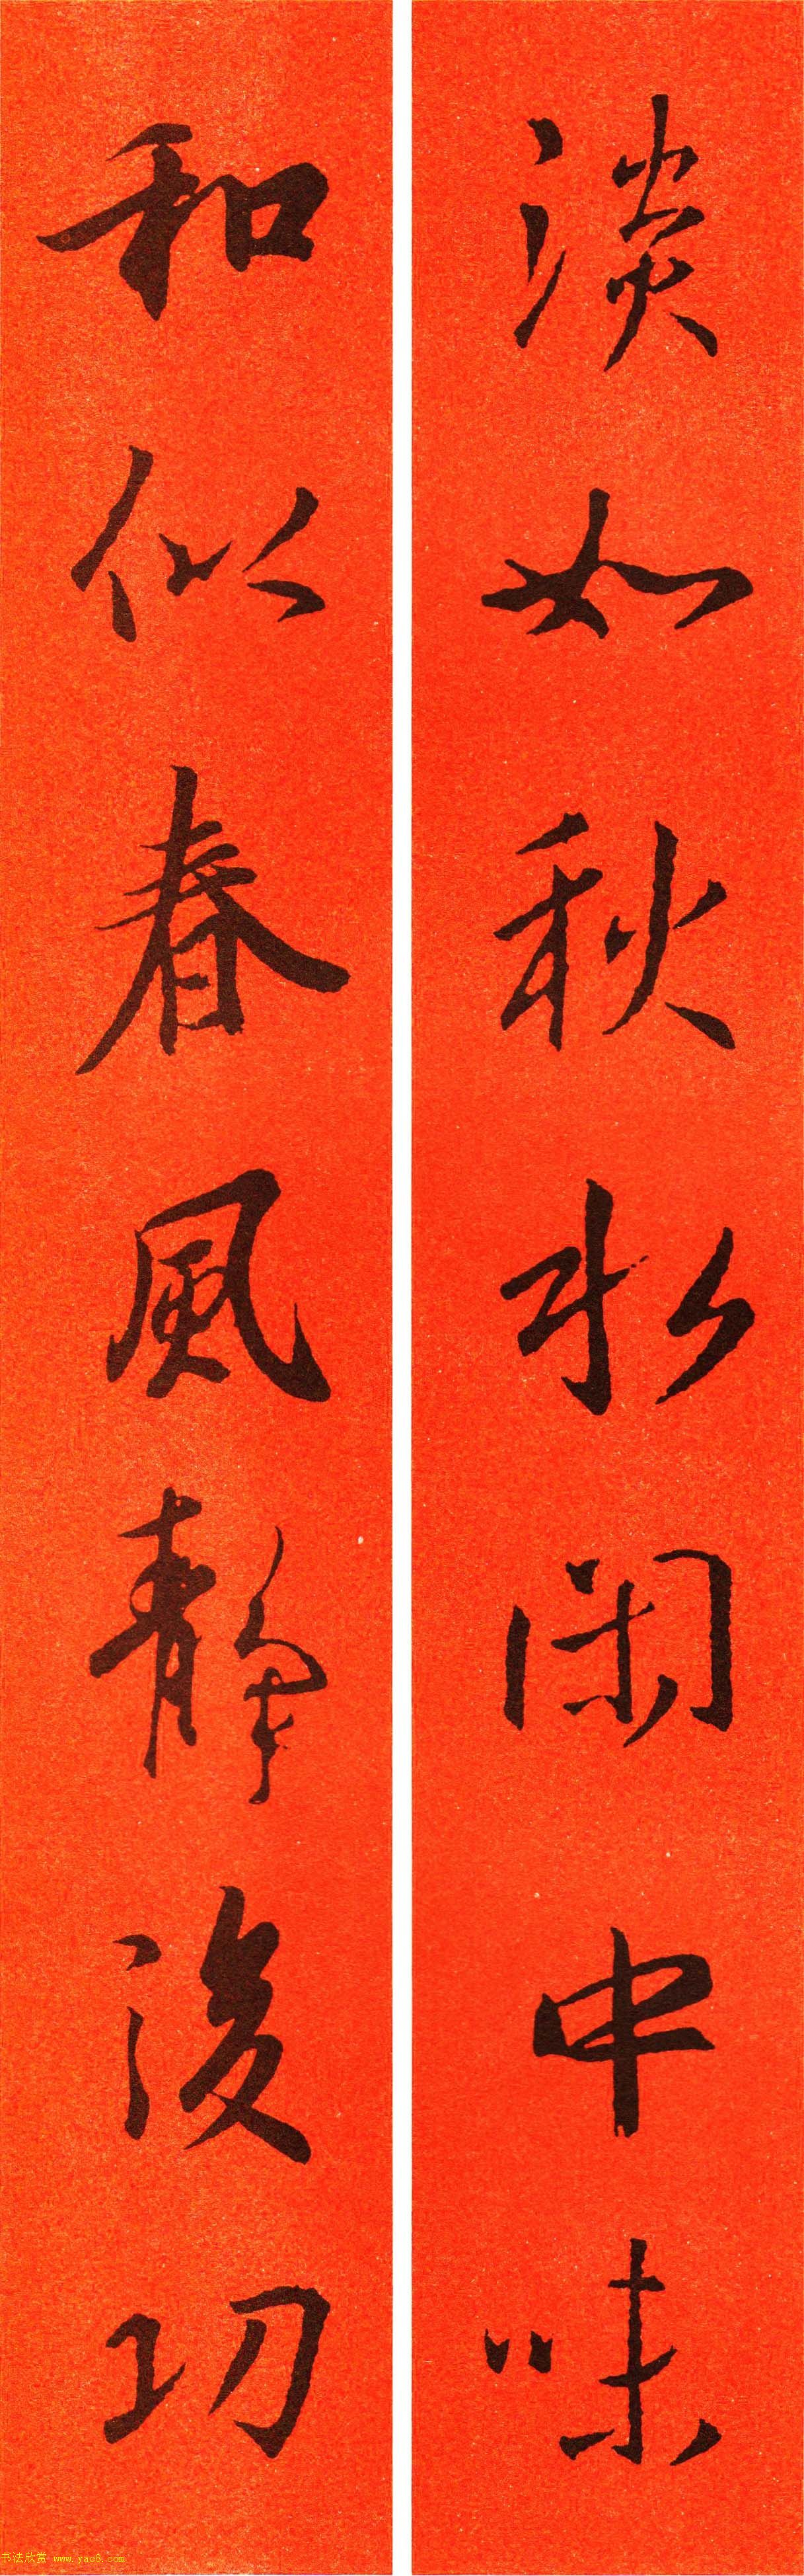 淡如秋水闲中味
和似春風静後功
书法欣赏 www.yac8.com